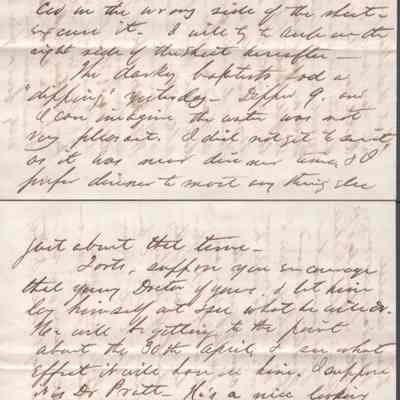 on the wrong side of the sheet -
Excuse it. I will try to write on the
right side of the sheet hereafter -
The darky baptists had a
"dipping" yesterday - Dipped 9. and
I can imagine the water was not
very pleasant. I did not go to see it,
as it was near dinner time, & I
prefer dinner to most any thing else
just about that time -
suppose you encourage
that young Doctor of yours, & let him
himself and see what he will do.
He will be getting to the point
about the 30th April, & see what
Effect it will have on him. I suppose
it is Dr Pratt - He is a nice looking